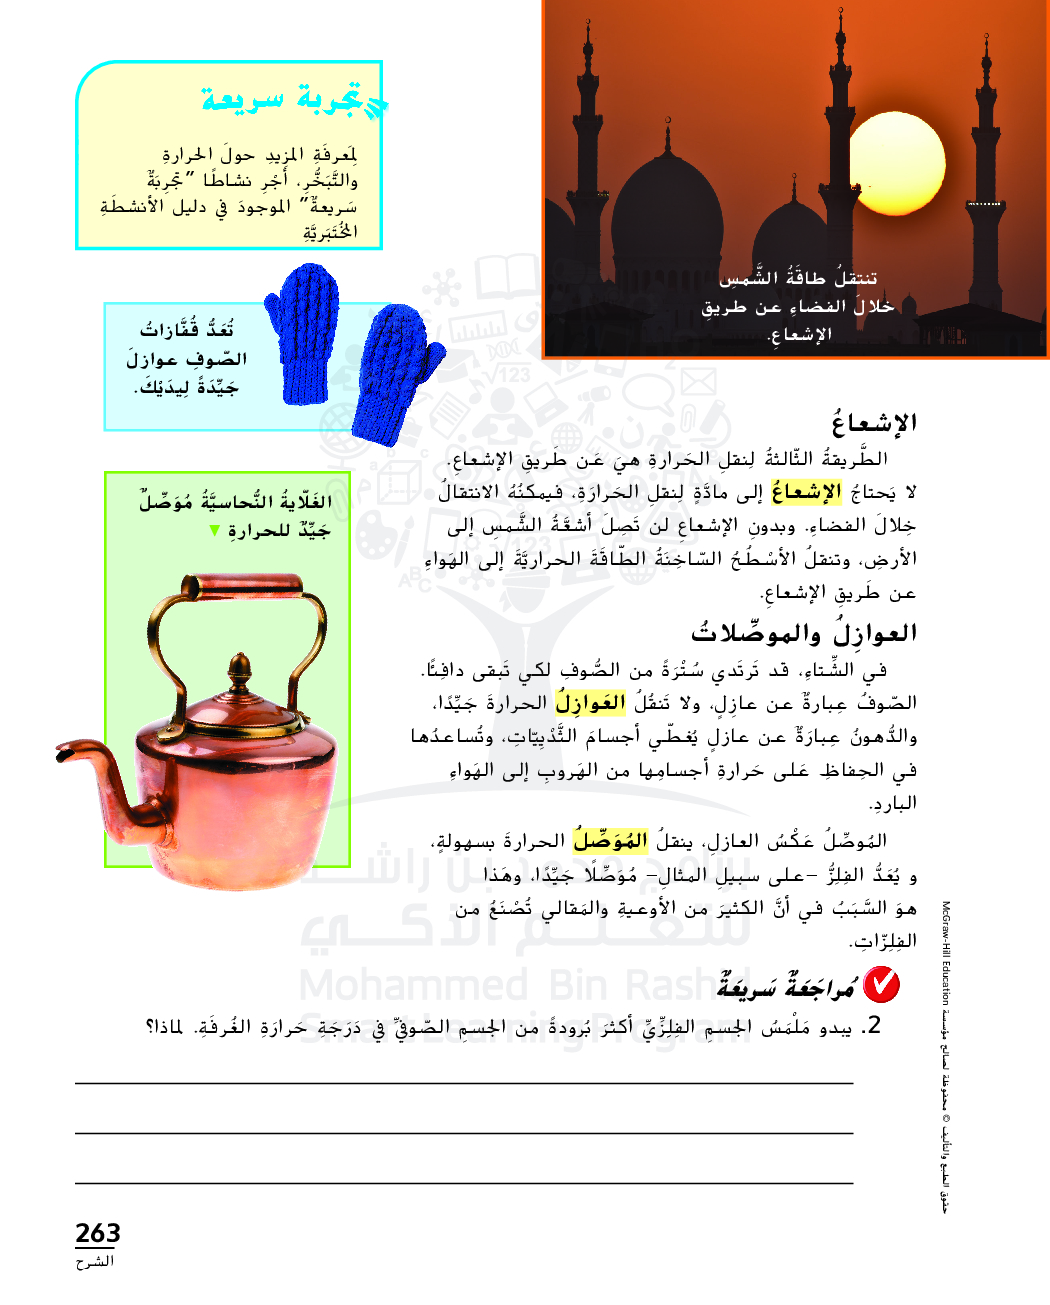 تنتقلُ طاقَةُ الشَّمسِ
خلالَ الفضاءِ عن طريقِ
الإشعاعِ.
تجربة سريعة
لِمَعرفَةِ المزيدِ حولَ الحرارةِ
والتَّبَخُّرِ، أَجْرِ نشاطًا "تجْرِبَةٌ
سَريعةٌ" الموجودَ في دليل الأنشطَةِ
المُخْتَبَرِيَّةِ
تُعَدُّ قُفَّازاتُ
الصّوفِ عوازلَ
جَيِّدَةً لِيدَيْكَ.
الغَلّايةُ النُّحاسيَّةُ مُوَصِّلٌ
جَيِّدٌ للحرارةِ ▼
الإشعاعُ
الطَّريقةُ الثّالثةُ لِنقلِ الحَرارةِ هيَ عَن طَريقِ الإشعاعِ.
لا يَحتاجُ الإشعاعُ إلى مادَّةٍ لِنقلِ الحَرارَةِ، فيمكنُهُ الانتقالُ
خِلالَ الفضاءِ. وبدونِ الإشعاعِ لن تَصِلَ أشعَّةُ الشَّمسِ إلى
الأرضِ، وتنقلُ الأسْطُحُ السّاخِنَةُ الطّاقَةَ الحراريَّةَ إلى الهَواءِ
عن طَريقِ الإشعاعِ.
العوازِلُ والموصِّلاتُ
في الشِّتاءِ، قد تَرتَدي سُتْرَةً من الصُّوفِ لكي تَبقى دافِئًا.
الصّوفُ عِبارةٌ عن عازِلٍ، ولا تَنقُلُ العَوازِلُ الحرارةَ جَيِّدًا،
والدُّهونُ عِبارَةٌ عن عازلٍ يُغطّي أجسامَ الثَّدْيِيّاتِ، وتُساعدُها
في الحِفاظِ عَلى حَرارةِ أجسامِها من الهَروبِ إلى الهَواءِ
الباردِ.
المُوصِّلُ عَكْسُ العازلِ، ينقلُ المُوَصِّلُ الحرارةَ بسهولةٍ،
و يُعَدُّ الفِلِزُّ –على سبيلِ المثالِ– مُوَصِّلًا جَيِّدًا، وهَذا
هوَ السَّبَبُ في أنَّ الكثيرَ من الأوعيةِ والمَقالي تُصْنَعُ من
الفِلِزّاتِ.
مُراجَعَةٌ سَريعَةٌ
2. يبدو مَلْمَسُ الجسمِ الفِلِزِّيِّ أكثرَ بُرودةً من الجسمِ الصّوفيِّ في دَرَجَةِ حَرارَةِ الغُرفَةِ. لماذا؟
برنامج محمد بن راشد
للتعلم الذكي
Mohammed Bin Rashid
Smart Learning Program
حقوق الطبع والتأليف © محفوظة لصالح مؤسسة McGraw-Hill Education
263
الشرح